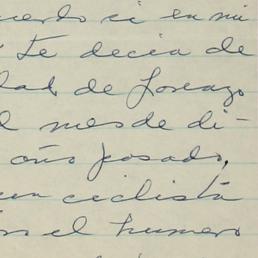 cuerdo si en mi
te decia de
dad de Lorenzo
l mes de di-
año pasado,
un ciclista
el humero